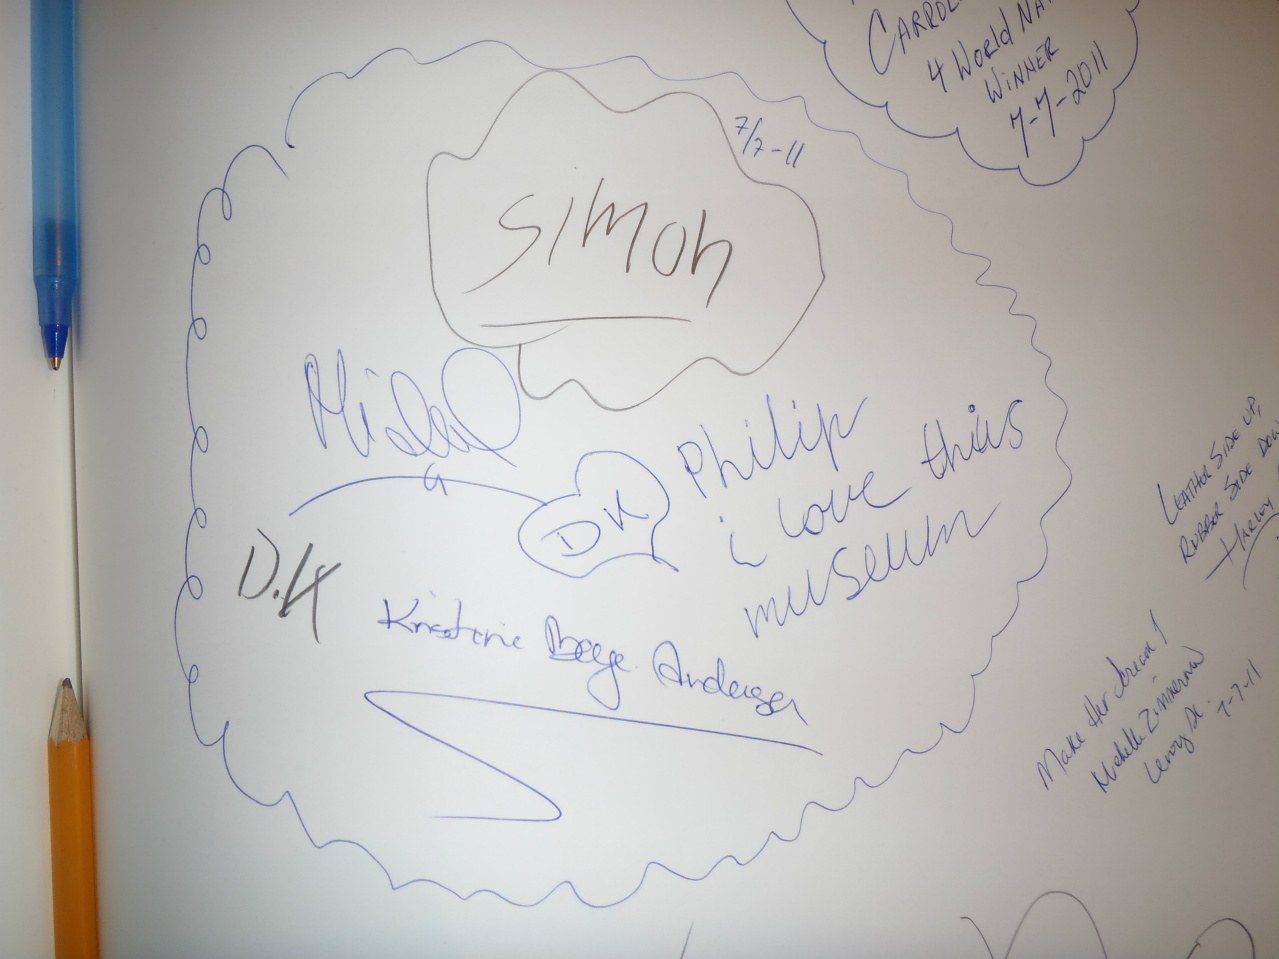 CARROL
4 WORLD NA
WINNER
7-7-2011
7/7-11
simon
DK
Philip
i love this
museum
D.K
Kristine Beege Andersen
LEATHER SIDE UP,
RUBBER SIDE DOW
HARLEY
Make Her dream!
Michelle Zimmerman
Leroy IL. 7-7-11